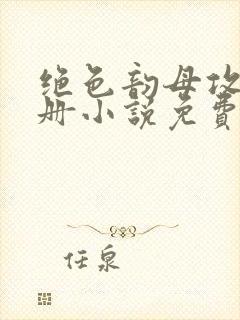 绝色韵母攻
册小说免费
任泉